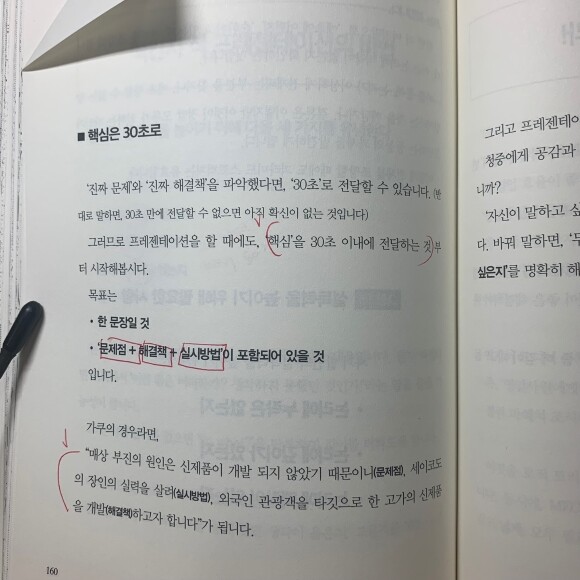 ■ 핵심은 30초로
'진짜 문제'와 '진짜 해결책'을 파악했다면, '30초'로 전달할 수 있습니다. (반
대로 말하면, 30초 만에 전달할 수 없으면 아직 확신이 없는 것입니다)
그러므로 프레젠테이션을 할 때에도, '핵심'을 30초 이내에 전달하는 것부
터 시작해봅시다.
목표는
• 한 문장일 것
• '문제점 + 해결책 + 실시방법'이 포함되어 있을 것
입니다.
가쿠의 경우라면,
"매상 부진의 원인은 신제품이 개발 되지 않았기 때문이니(문제점), 세이코도
의 장인의 실력을 살려(실시방법), 외국인 관광객을 타깃으로 한 고가의 신제품
을 개발(해결책)하고자 합니다"가 됩니다.
160
그리고 프레젠테이
청중에게 공감과
니까?
'자신이 말하고 싶
다. 바꿔 말하면, '무
싶은지'를 명확히 해